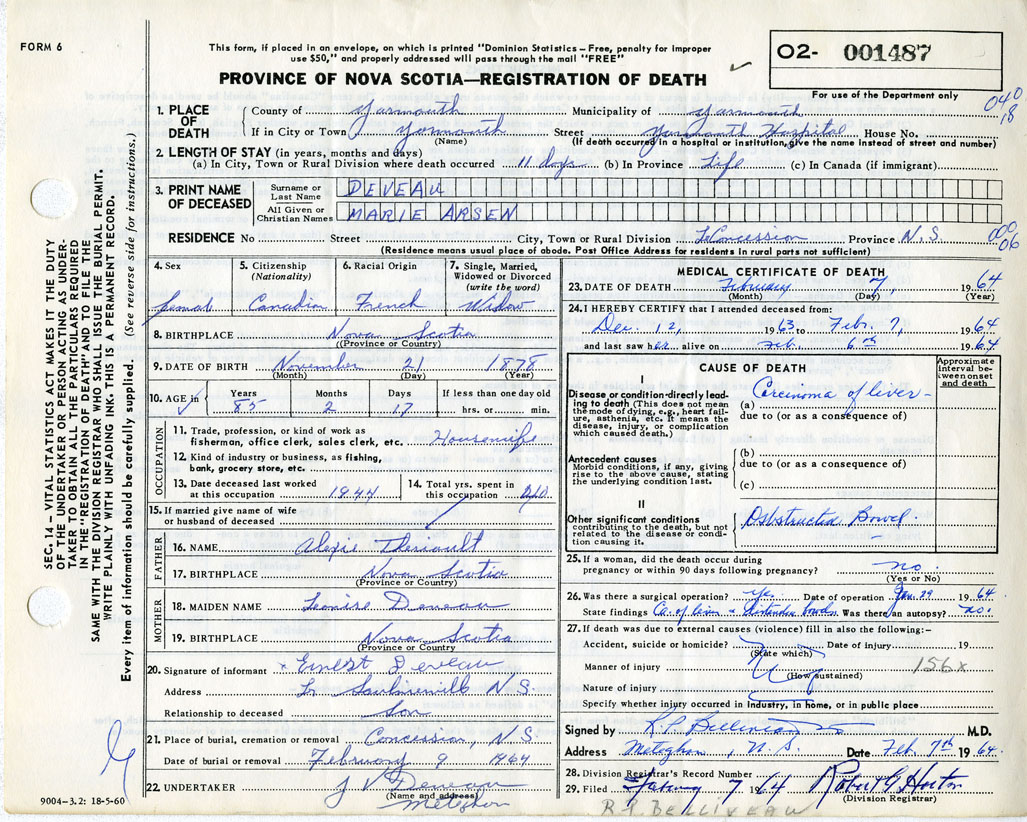 FORM 6
This form, if placed in an envelope, on which is printed "Dominion Statistics – Free, penalty for improper
use $50," and properly addressed will pass through the mail "FREE"
PROVINCE OF NOVA SCOTIA—REGISTRATION OF DEATH
O2- 001487
For use of the Department only
SEC. 14 – VITAL STATISTICS ACT MAKES IT THE DUTY
OF THE UNDERTAKER OR PERSON ACTING AS UNDER-
TAKER TO OBTAIN ALL THE PARTICULARS REQUIRED
IN THE "REGISTRATION OF DEATH" AND TO FILE THE
SAME WITH THE DIVISION REGISTRAR WHO SHALL ISSUE THE BURIAL PERMIT.
WRITE PLAINLY WITH UNFADING INK. THIS IS A PERMANENT RECORD.
Every item of information should be carefully supplied. (See reverse side for instructions.)
1. PLACE OF DEATH
County of Yarmouth Municipality of Yarmouth
040
18
If in City or Town Yarmouth Street Yarmouth Hospital House No.
(Name) (If death occurred in a hospital or institution, give the name instead of street and number)
2. LENGTH OF STAY (in years, months and days)
(a) In City, Town or Rural Division where death occurred 11 days (b) In Province Life (c) In Canada (if immigrant)
3. PRINT NAME OF DECEASED
Surname or Last Name DEVEAU
All Given or Christian Names MARIE ARSEN
RESIDENCE No Street City, Town or Rural Division Concession Province N.S.
06
(Residence means usual place of abode. Post Office Address for residents in rural parts not sufficient)
4. Sex
5. Citizenship (Nationality) Canadian
6. Racial Origin French
7. Single, Married, Widowed or Divorced (write the word) Widow
8. BIRTHPLACE Nova Scotia
(Province or Country)
9. DATE OF BIRTH November 21 1878
(Month) (Day) (Year)
10. AGE in Years 85 Months 2 Days 17 If less than one day old hrs. or min.
OCCUPATION
11. Trade, profession, or kind of work as
fisherman, office clerk, sales clerk, etc. Housewife
12. Kind of industry or business, as fishing,
bank, grocery store, etc.
13. Date deceased last worked at this occupation 1944
14. Total yrs. spent in this occupation
15. If married give name of wife
or husband of deceased
FATHER
16. NAME Alexie Theriault
17. BIRTHPLACE Nova Scotia
(Province or Country)
MOTHER
18. MAIDEN NAME Leonise Deveau
19. BIRTHPLACE Nova Scotia
(Province or Country
20. Signature of informant x Ernest Deveau
Address Saulnierville N.S.
Relationship to deceased Son
21. Place of burial, cremation or removal Concession, N.S.
Date of burial or removal February 9 1964
22. UNDERTAKER J V Deveau
(Name and address)
Meteghan
9004-3.2: 18-5-60
MEDICAL CERTIFICATE OF DEATH
23. DATE OF DEATH February 7, 1964
(Month) (Day) (Year)
24. I HEREBY CERTIFY that I attended deceased from:
Dec. 12, 1963 to Feb. 7, 1964
and last saw her alive on Feb. 6th 1964
CAUSE OF DEATH
Approximate interval between onset and death
I
Disease or condition directly lead-
ing to death (This does not mean
the mode of dying, e.g., heart fail-
ure, asthenia, etc. It means the
disease, injury, or complication
which caused death.)
(a) Carcinoma of liver -
due to (or as a consequence of)
Antecedent causes
Morbid conditions, if any, giving
rise to the above cause, stating
the underlying condition last.
(b)
due to (or as a consequence of)
(c)
II
Other significant conditions
contributing to the death, but not
related to the disease or condi-
tion causing it.
Obstructed Bowel.
25. If a woman, did the death occur during
pregnancy or within 90 days following pregnancy? no.
(Yes or No)
26. Was there a surgical operation? Yes. Date of operation Jan. 29 1964
State findings Ca. of liver Was there an autopsy? no.
27. If death was due to external causes (violence) fill in also the following:–
Accident, suicide or homicide? Date of injury 19
(State which)
Manner of injury 156x
(How sustained)
Nature of injury
Specify whether injury occurred in Industry, in home, or in public place
Signed by R.P. Belliveau M.D.
Address Meteghan, N.S. Date Feb. 7th 1964
28. Division Registrar's Record Number
29. Filed 7 1964 Robert G Horton
(Division Registrar)
R.P. BELLIVEAU